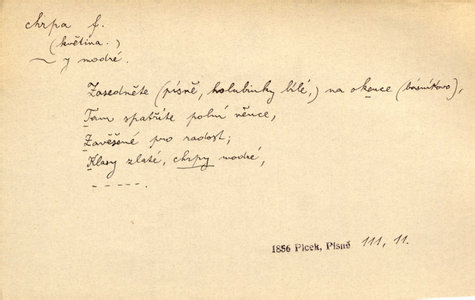 chrpa f.
(květina.)
~ y modré.
Zasedněte (písně, holubinky bílé,) na okence (básníkovo),
Tam spatříte polní věnce,
Zavěšené pro radost;
Klasy zlaté, chrpy modré,
-----.
1856 Picek, Písně 111, 11.